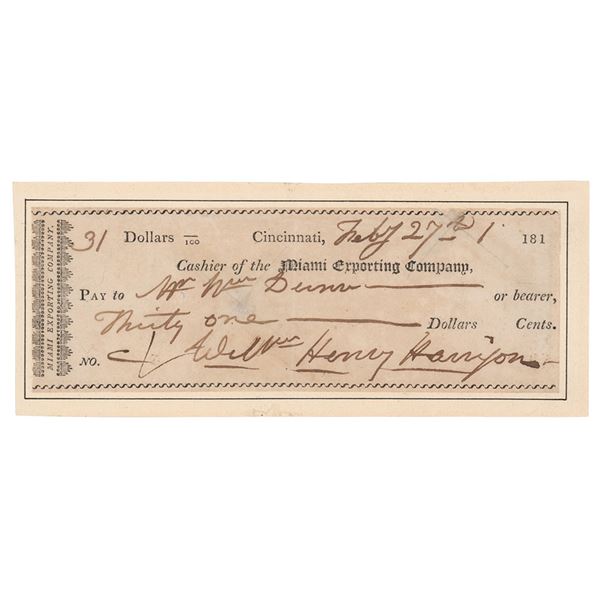 MIAMI EXPORTING COMPANY.
31 Dollars /100 Cincinnati, Feby 27th 1 181
Cashier of the Miami Exporting Company,
PAY to Mr Wm Dunn or bearer,
Thirty one Dollars Cents.
NO. Willm Henry Harrison